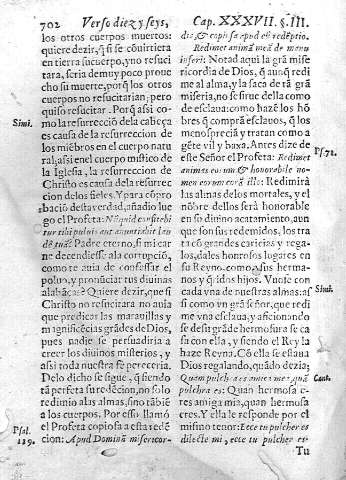 702 Verso diez y seys,
los otros cuerpos muertos:
quiere dezir, q̃ si se cõuirtiera
en tierra su cuerpo, y no resuci
tara, seria de muy poco proue
cho su muerte, porq̃ los otros
cuerpos no resucitarian; pero
quiso resucitar. Porq̃ assi co-
Simi. mo la resurrecciõ de la cabeça
es causa de la resurreccion de
los miẽbros en el cuerpo natu
ral; assi en el cuerpo mistico de
la Iglesia, la resurreccion de
Christo es causa de la resurrec
cion de los fieles. Y para cõpro
bació desta verdad, añadio lue
go el Profeta: Nũquid confitebi
tur tibi puluis aut annuntiabit lau
dẽ tuã? Padre eterno, si mi car
ne decendiesse a la corrupció,
como te auia de confessar el
poluo, y pronũciar tus diuinas
alabãças? Quiere dezir, que si
Christo no resucitara no auia
que predicar las marauillas y
magnificẽcias grãdes de Dios,
pues nadie se persuadiria a
creer los diuinos misterios, y
assi toda nuestra fe pereceria.
De lo dicho se sigue, q̃ siendo
tã perfeta su redẽcion, no solo
redimio a las almas, sino tãbiẽ
a los cuerpos. Por esso llamò
Psal. 119. el Profeta copiosa a esta redẽ
cion: Apud Dominũ misericor-
Cap. XXXVII. §. III.
dia, & copiosa apud eũ redẽptio.
Redimet animã meã de manu
inferi: Notad aqui la grã mise
ricordia de Dios, q̃ aunq̃ redi
me al alma, y la saca de tã grã
miseria, no se sirue della como
de esclaua: como hazẽ los hõ
bres q̃ compra esclauos, q̃ los
menosprecia y tratan como a
gẽte vil y baxa. Antes dize de
este Señor el Profeta: Redimet Ps. 71.
animas eorum & honorabile no-
men eorum corã illo: Redimirà
las almas de los mortales, y el
nõbre dellos serà honorable
en su diuino acatamiento, aun
que son sus redemidos, los tra
ta cõ grandes caricias y rega-
los, dales honrosos lugares en
su Reyno, como a sus herma-
nos y q̃ridos hijos. Vuose con
cada vna de nuestras almas; as Simi.
si como vn grã señor, que redi
me vna esclaua, y aficionando
se desu grãde hermosura se ca
sa con ella, y siendo el Rey la
haze Reyna. Cõ ella se estaua
Dios regalando, quãdo dezia:
Quam pulchra es amica mea, quã Cant.
pulchra es: Quan hermosa e-
res amiga mia, quan hermosa
eres. Y ella le responde por el
mismo tenor: Ecce tu pulcher es
dilecte mi, ecce tu pulcher es.
Tu